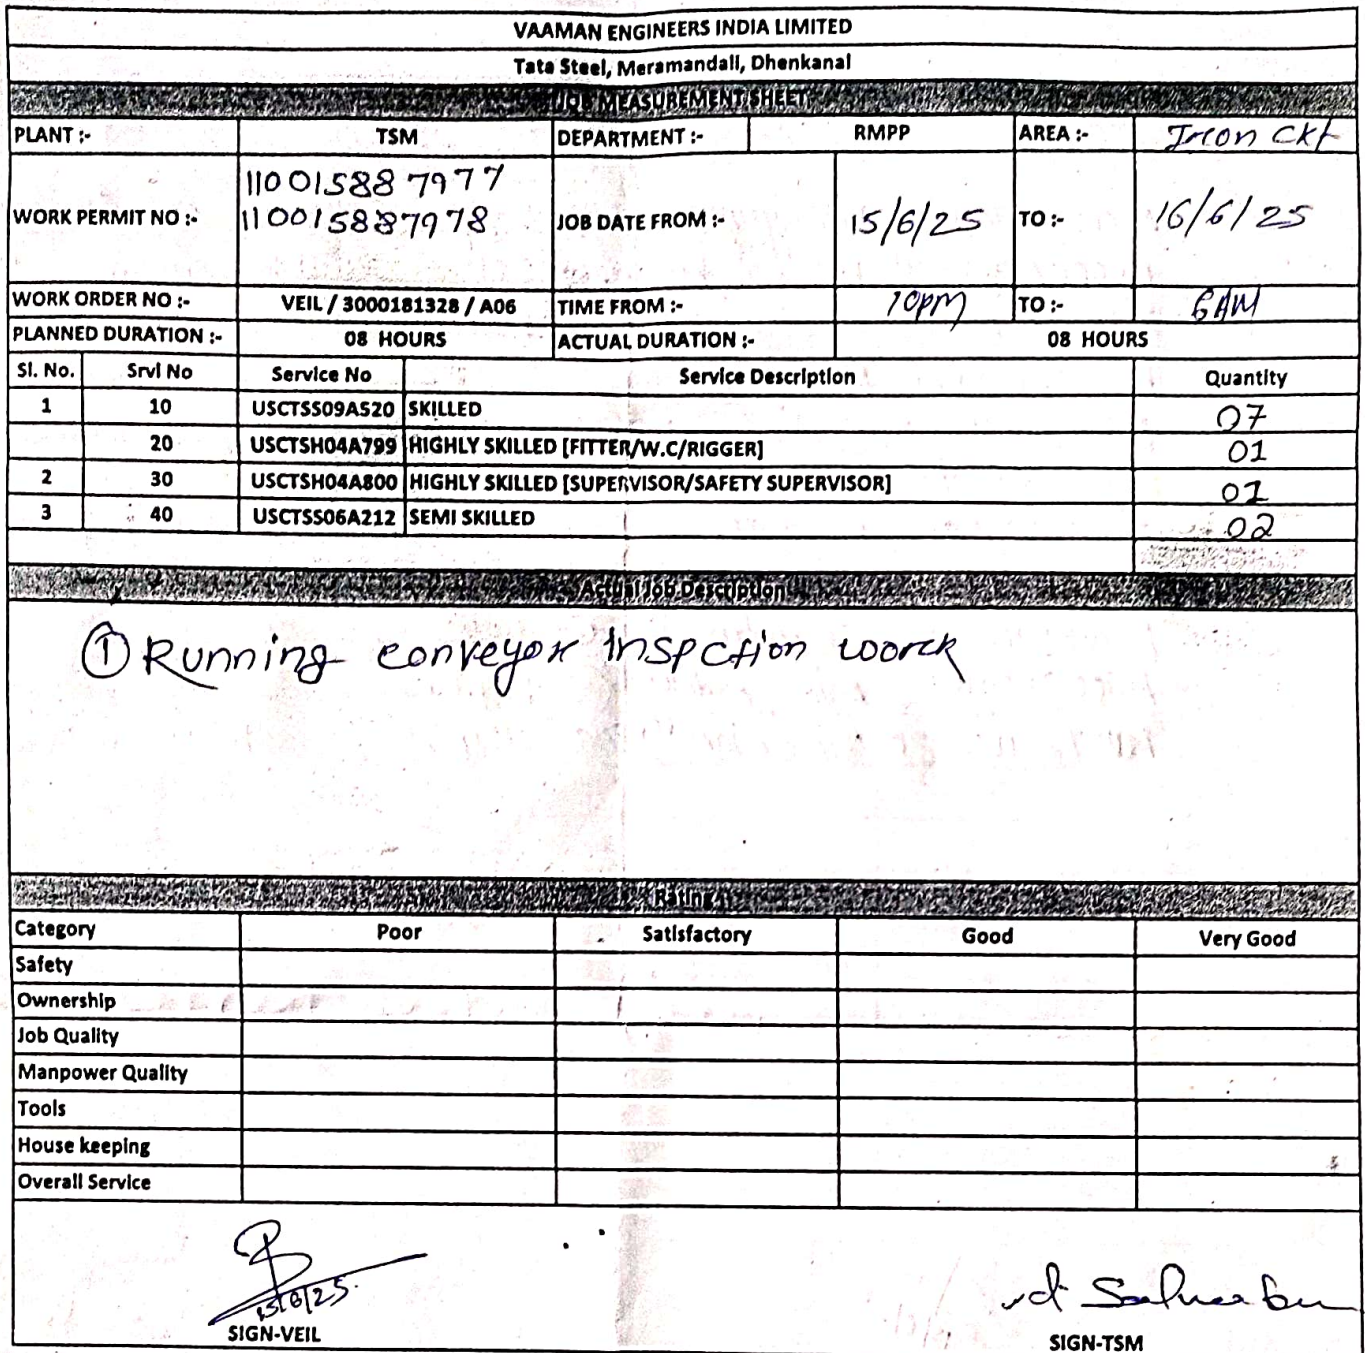 VAAMAN ENGINEERS INDIA LIMITED
Tata Steel, Meramandali, Dhenkanal
JOB MEASUREMENT SHEET
PLANT :- TSM DEPARTMENT :- RMPP AREA :- Iron Ckt
WORK PERMIT NO :- 110015887977 110015887978 JOB DATE FROM :- 15/6/25 TO :- 16/6/25
WORK ORDER NO :- VEIL / 3000181328 / A06 TIME FROM :- 10pm TO :- 6AM
PLANNED DURATION :- 08 HOURS ACTUAL DURATION :- 08 HOURS
Sl. No. Srvl No Service No Service Description Quantity
1 10 USCTSS09A520 SKILLED 07
20 USCTSH04A799 HIGHLY SKILLED [FITTER/W.C/RIGGER] 01
2 30 USCTSH04A800 HIGHLY SKILLED [SUPERVISOR/SAFETY SUPERVISOR] 01
3 40 USCTSS06A212 SEMI SKILLED 02
Actual Job Description
① Running conveyor inspction woork
Rating
Category Poor Satisfactory Good Very Good
Safety
Ownership
Job Quality
Manpower Quality
Tools
House keeping
Overall Service
15/6/25.
SIGN-VEIL
SIGN-TSM